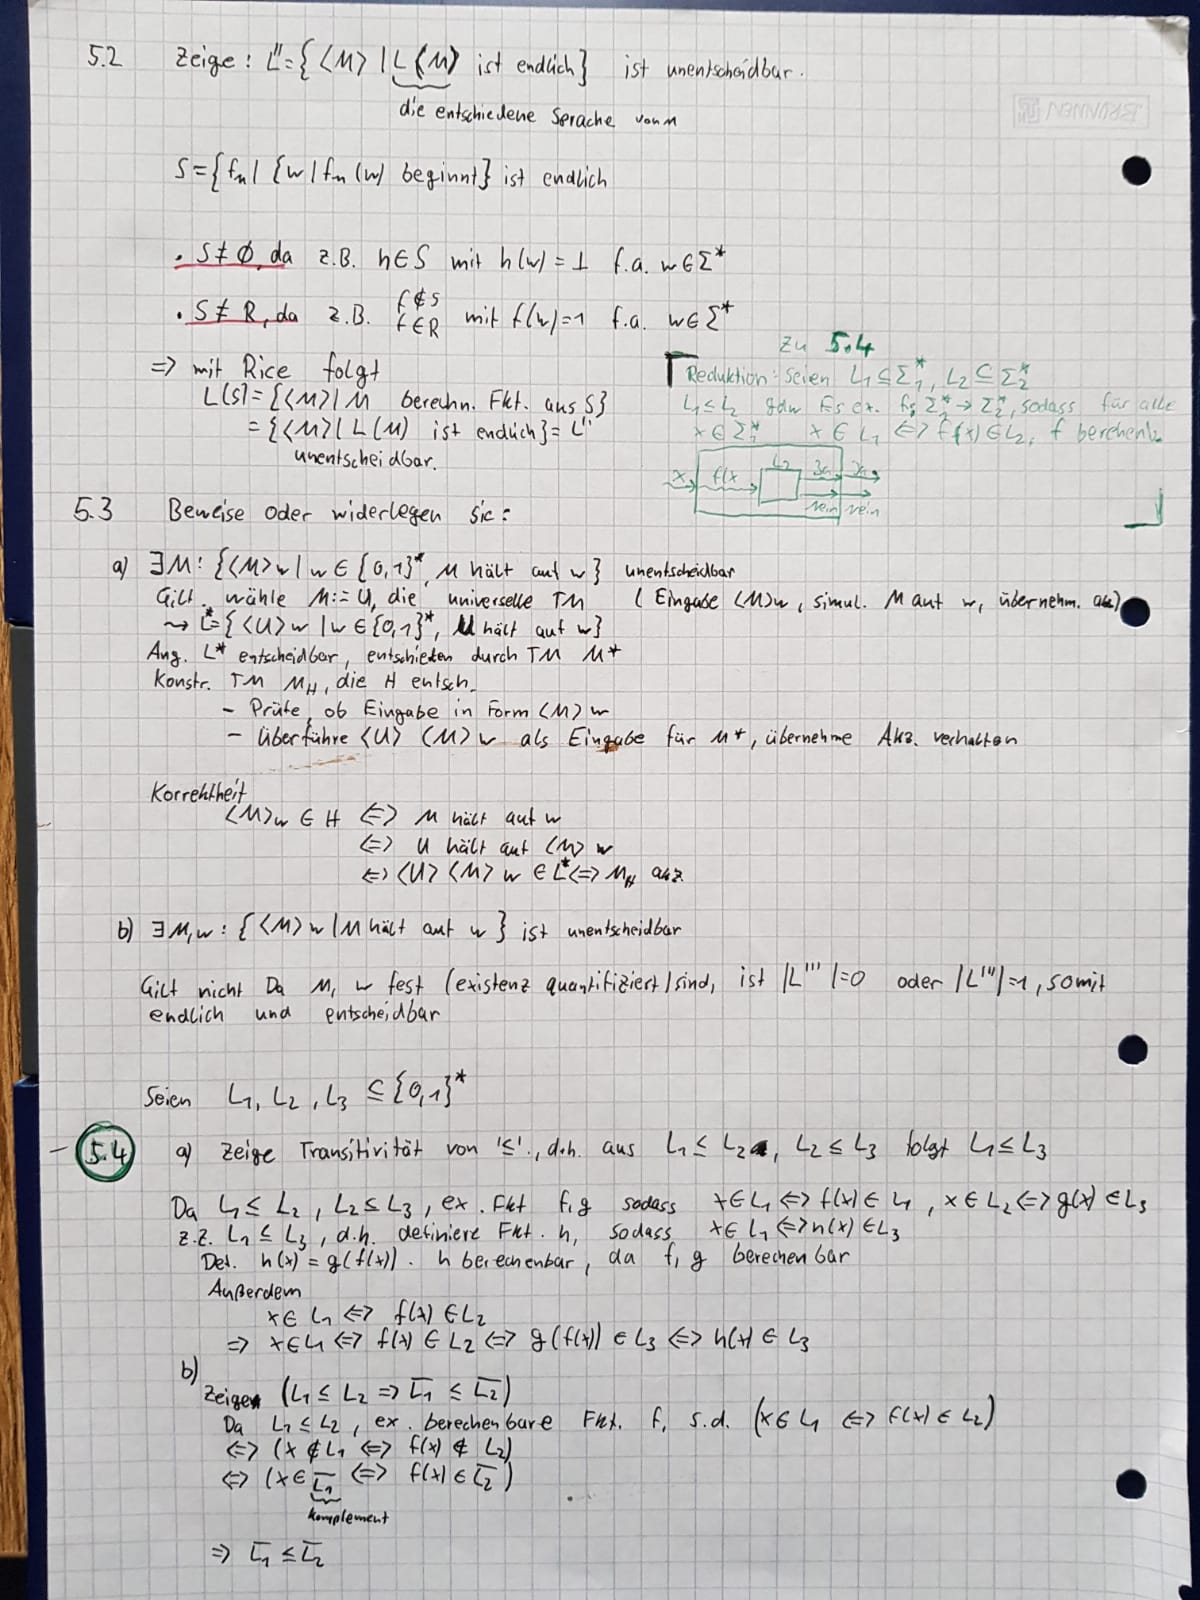 5.2 Zeige: L''={⟨M⟩ | L(M) ist endlich} ist unentscheidbar.
die entschiedene Sprache von M
S={f_M | {w | f_M(w) beginnt} ist endlich
• S≠∅, da z.B. h∈S mit h(w)=⊥ f.a. w∈Σ*
• S≠R, da z.B. f∉S f∈R mit f(w)=1 f.a. w∈Σ*
⇒ mit Rice folgt
L(S)={⟨M⟩ | M berechn. Fkt. aus S}
={⟨M⟩ | L(M) ist endlich}=L''
unentscheidbar.
zu 5.4
Reduktion: Seien L₁⊆Σ₁*, L₂⊆Σ₂*
L₁≤L₂ gdw Es ex. f: Σ₁*→Σ₂*, sodass für alle
x∈Σ₁* x∈L₁ ⇔ f(x)∈L₂, f berechenb.
x f(x L₂ Ja Ja
nein nein
5.3 Beweise oder widerlegen Sie:
a) ∃M: {⟨M⟩w | w∈{0,1}*, M hält auf w} unentscheidbar
Gilt. wähle M:=U, die universelle TM (Eingabe ⟨M⟩w, simul. M auf w, übernehm. akz)
⇝ L*={⟨U⟩w | w∈{0,1}*, U hält auf w}
Ang. L* entscheidbar, entschieden durch TM M*
Konstr. TM M_H, die H entsch.
- Prüfe, ob Eingabe in Form ⟨M⟩w
- Überführe ⟨U⟩⟨M⟩w als Eingabe für M*, übernehme Akz. verhalten
Korrektheit
⟨M⟩w∈H ⇔ M hält auf w
⇔ U hält auf ⟨M⟩w
⇔ ⟨U⟩⟨M⟩w∈L* ⇔ M_H akz.
b) ∃M,w: {⟨M⟩w | M hält auf w} ist unentscheidbar
Gilt nicht Da M, w fest (existenz quantifiziert) sind, ist |L'''|=0 oder |L'''|=1, somit
endlich und entscheidbar
Seien L₁, L₂, L₃ ⊆{0,1}*
5.4 a) Zeige Transitivität von '≤', d.h. aus L₁≤L₂, L₂≤L₃ folgt L₁≤L₃
Da L₁≤L₂, L₂≤L₃, ex. Fkt f,g sodass x∈L₁⇔f(x)∈L₁, x∈L₂⇔g(x)∈L₃
z.z. L₁≤L₃, d.h. definiere Fkt. h, sodass x∈L₁⇔h(x)∈L₃
Def. h(x)=g(f(x)). h berechenbar, da f,g berechenbar
Außerdem
x∈L₁ ⇔ f(x)∈L₂
⇒ x∈L₁ ⇔ f(x)∈L₂ ⇔ g(f(x))∈L₃ ⇔ h(x)∈L₃
b)
Zeigen (L₁≤L₂ ⇒ L̅₁≤L̅₂)
Da L₁≤L₂, ex. berechenbare Fkt. f, s.d. (x∈L₁ ⇔ f(x)∈L₂)
⇔ (x∉L₁ ⇔ f(x)∉L₂)
⇔ (x∈L̅₁ ⇔ f(x)∈L̅₂)
Komplement
⇒ L̅₁≤L̅₂
BRUNNEN